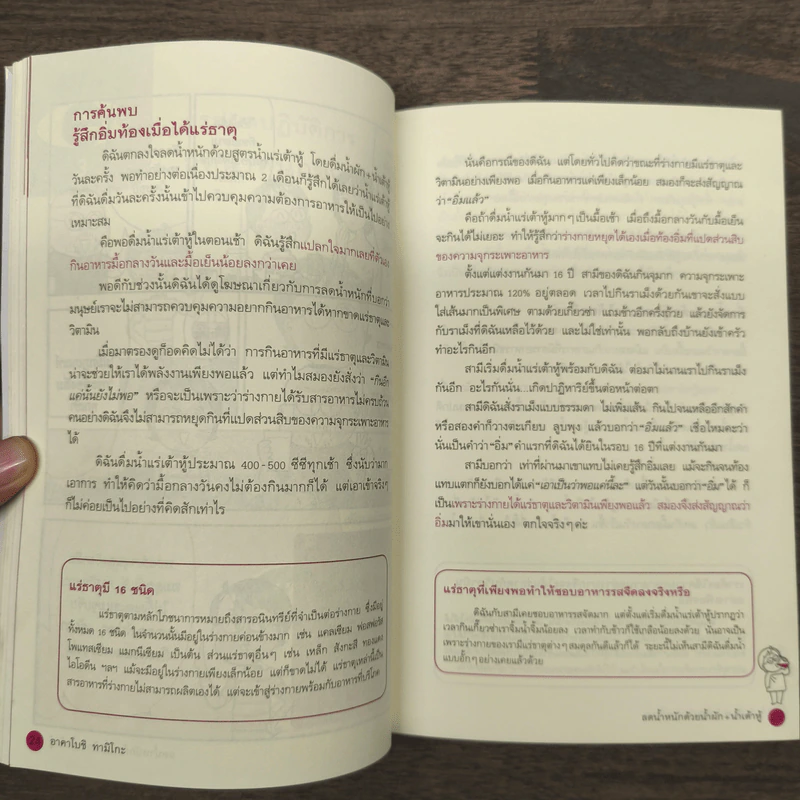 การค้นพบ
รู้สึกอิ่มท้องเมื่อได้แร่ธาตุ
ดิฉันตกลงใจลดน้ำหนักด้วยสูตรน้ำแร่เต้าหู้ โดยดื่มน้ำผัก+น้ำเต้าหู้
วันละครั้ง พอทำอย่างต่อเนื่องประมาณ 2 เดือนก็รู้สึกได้เลยว่าน้ำแร่เต้าหู้
ที่ดิฉันดื่มวันละครั้งนั้นเข้าไปควบคุมความต้องการอาหารให้เป็นไปอย่าง
เหมาะสม
คือพอดื่มน้ำแร่เต้าหู้ในตอนเช้า ดิฉันรู้สึกแปลกใจมากเลยที่ตัวเอง
กินอาหารมื้อกลางวันและมื้อเย็นน้อยลงกว่าเคย
พอดีกับช่วงนั้นดิฉันได้ดูโฆษณาเกี่ยวกับการลดน้ำหนักที่บอกว่า
มนุษย์เราจะไม่สามารถควบคุมความอยากกินอาหารได้หากขาดแร่ธาตุและ
วิตามิน
เมื่อมาตรองดูก็อดคิดไม่ได้ว่า การกินอาหารที่มีแร่ธาตุและวิตามิน
น่าจะช่วยให้เราได้พลังงานเพียงพอแล้ว แต่ทำไมสมองยังสั่งว่า "กินอีก
แค่นั้นยังไม่พอ" หรือจะเป็นเพราะว่าร่างกายได้รับสารอาหารไม่ครบถ้วน
คนอย่างดิฉันจึงไม่สามารถหยุดกินที่แปดส่วนสิบของความจุกระเพาะอาหาร
ได้
ดิฉันดื่มน้ำแร่เต้าหู้ประมาณ 400-500 ซีซีทุกเช้า ซึ่งนับว่ามาก
เอาการ ทำให้คิดว่ามื้อกลางวันคงไม่ต้องกินมากก็ได้ แต่เอาเข้าจริงๆ
ก็ไม่ค่อยเป็นไปอย่างที่คิดสักเท่าไร
แร่ธาตุมี 16 ชนิด
แร่ธาตุตามหลักโภชนาการหมายถึงสารอนินทรีย์ที่จำเป็นต่อร่างกาย ซึ่งมีอยู่
ทั้งหมด 16 ชนิด ในจำนวนนั้นมีอยู่ในร่างกายค่อนข้างมาก เช่น แคลเซียม ฟอสฟอรัส
โพแทสเซียม แมกนีเซียม เป็นต้น ส่วนแร่ธาตุอื่นๆ เช่น เหล็ก สังกะสี ทองแดง
ไอโอดีน ฯลฯ แม้จะมีอยู่ในร่างกายเพียงเล็กน้อย แต่ก็ขาดไม่ได้ แร่ธาตุเหล่านี้เป็น
สารอาหารที่ร่างกายไม่สามารถผลิตเองได้ แต่จะเข้าสู่ร่างกายพร้อมกับอาหารที่บริโภค
24 อาคาโบชิ ทามิโกะ
นั่นคือกรณีของดิฉัน แต่โดยทั่วไปคิดว่าขณะที่ร่างกายมีแร่ธาตุและ
วิตามินอย่างเพียงพอ เมื่อกินอาหารแค่เพียงเล็กน้อย สมองก็จะส่งสัญญาณ
ว่า "อิ่มแล้ว"
คือถ้าดื่มน้ำแร่เต้าหู้มากๆ เป็นมื้อเช้า เมื่อถึงมื้อกลางวันกับมื้อเย็น
จะกินได้ไม่เยอะ ทำให้รู้สึกว่าร่างกายหยุดได้เองเมื่อท้องอิ่มที่แปดส่วนสิบ
ของความจุกระเพาะอาหาร
ตั้งแต่แต่งงานกันมา 16 ปี สามีของดิฉันกินจุมาก ความจุกระเพาะ
อาหารประมาณ 120% อยู่ตลอด เวลาไปกินราเม็งด้วยกันเขาจะสั่งแบบ
ใส่เส้นมากเป็นพิเศษ ตามด้วยเกี๊ยวซ่า แถมข้าวอีกครึ่งถ้วย แล้วยังจัดการ
กับราเม็งที่ดิฉันเหลือไว้ด้วย และไม่ใช่เท่านั้น พอกลับถึงบ้านยังเข้าครัว
ทำอะไรกินอีก
สามีเริ่มดื่มน้ำแร่เต้าหู้พร้อมกับดิฉัน ต่อมาไม่นานเราไปกินราเม็ง
กันอีก อะไรกันนั่น...เกิดปาฏิหาริย์ขึ้นต่อหน้าต่อตา
สามีดิฉันสั่งราเม็งแบบธรรมดา ไม่เพิ่มเส้น กินไปจนเหลืออีกสักคำ
หรือสองคำก็วางตะเกียบ ลูบพุง แล้วบอกว่า "อิ่มแล้ว" เชื่อไหมคะว่า
นั่นเป็นคำว่า "อิ่ม" คำแรกที่ดิฉันได้ยินในรอบ 16 ปีที่แต่งงานกันมา
สามีบอกว่า เท่าที่ผ่านมาเขาแทบไม่เคยรู้สึกอิ่มเลย แม้จะกินจนท้อง
แทบแตกก็ยังบอกได้แค่ "เอาเป็นว่าพอแค่นี้ละ" แต่วันนั้นบอกว่า "อิ่ม" ได้ ก็
เป็นเพราะร่างกายได้แร่ธาตุและวิตามินเพียงพอแล้ว สมองจึงส่งสัญญาณว่า
อิ่มมาให้เขานั่นเอง ตกใจจริงๆ ค่ะ
แร่ธาตุที่เพียงพอทำให้ชอบอาหารรสจืดลงจริงหรือ
ดิฉันกับสามีเคยชอบอาหารรสจัดมาก แต่ตั้งแต่เริ่มดื่มน้ำแร่เต้าหู้ปรากฏว่า
เวลากินเกี๊ยวซ่าเราจิ้มน้ำจิ้มน้อยลง เวลาทำกับข้าวก็ใช้เกลือน้อยลงด้วย นั่นอาจเป็น
เพราะร่างกายของเรามีแร่ธาตุต่างๆ สมดุลกันดีแล้วก็ได้ ระยะนี้ไม่เห็นสามีดิฉันดื่มน้ำ
แบบอั้กๆ อย่างเคยแล้วด้วย
ลดน้ำหนักด้วยน้ำผัก+น้ำเต้าหู้